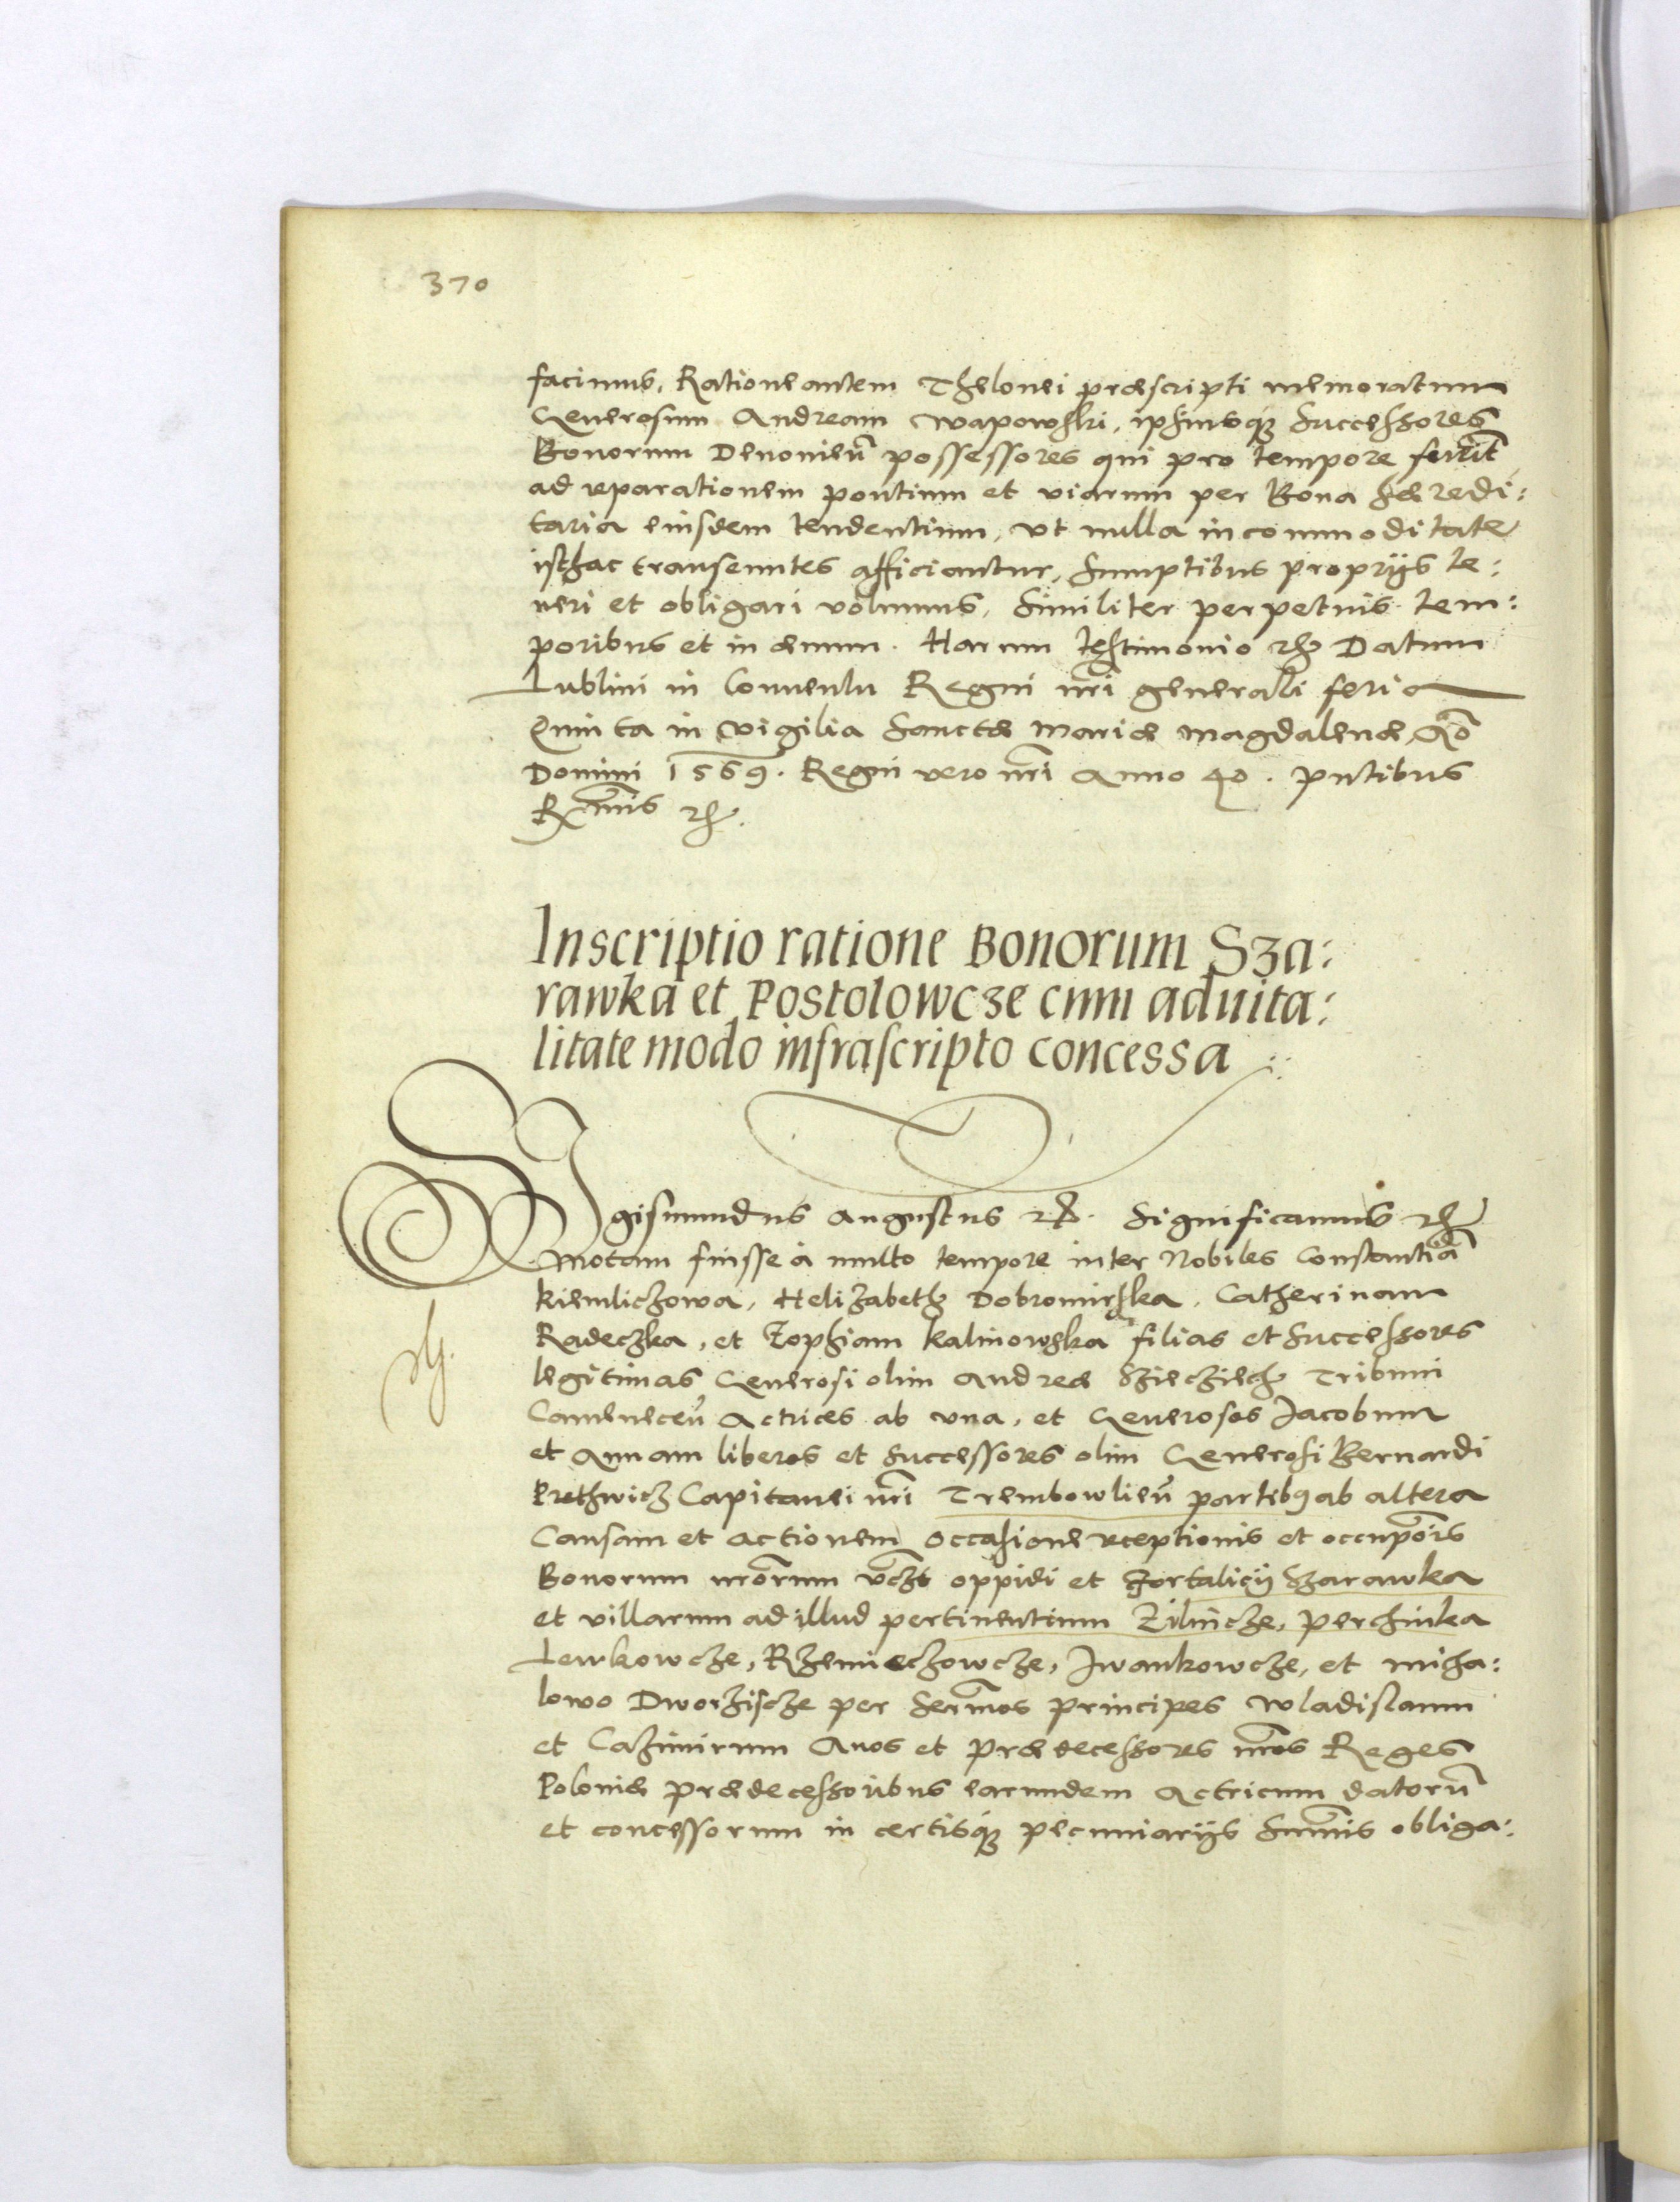 370
facimus, Ratione autem Thelonei præscripti memoratum
Generosum Andream Wapowski, ipsiusq́ꝫ Successores
Bonorum Denovień possessores qui pro tempore fuerīt
ad reparationem pontium et viarum per Bona hæredi:
taria eiusdem tendentium, vt nulla incommoditate
isthac transeuntes afficiantur, Sumptibus proprijs te:
neri et obligari volumus, Similiter perpetuis tem:
poribus et in ævum. Harum testimonio etc Datum
Lublini in Conventu Regni nr̄i generali feria
Quinta in vigilia Sanctæ Mariæ Magdalenæ, Aō
Domini 1569. Regni vero nr̄i Anno 40. pntibus
Rx̄mis etc.
Inscriptio ratione Bonorum Sza:
rawka et Postolowcze cum aduita:
litate modo infrascripto concessa
Sigismundus Augustus etc. Significamus etc
Motam fuisse à multo tempore inter Nobiles Constantiā
Kiemliczowa, Helizabeth Dobromirska, Catherinam
Radeczka, et Zophiam Kalinowska filias et Successores
legitimas Generosi olim Andreæ Sziecziech Tribuni
Cameneceń Actrices ab vna, et Generosos Jacobum
et Annam liberos et Successores olim Generosi Bernardi
Prethwicz Capitanei nr̄i Trembowlień partibꝯ ab altera
Causam et actionem occasione receptionis et occupōnis
Bonorum nrōrum vc̄zt oppidi et Fortalicij Szarawka
et villarum ad illud pertinentium Zilincze, Perchinka
Lewkowcze, Rzemieczowcze, Iwankowcze, et Micha:
lowo Dworziscze per Serm̄os Principes Wladislaum
et Cazimirum Auos et Prædecessores nr̄os Reges
Poloniæ prædecessoribus earundem Actricum datorū
et concessorum in certisq́ꝫ pecuniarijs Sum̄is obliga: